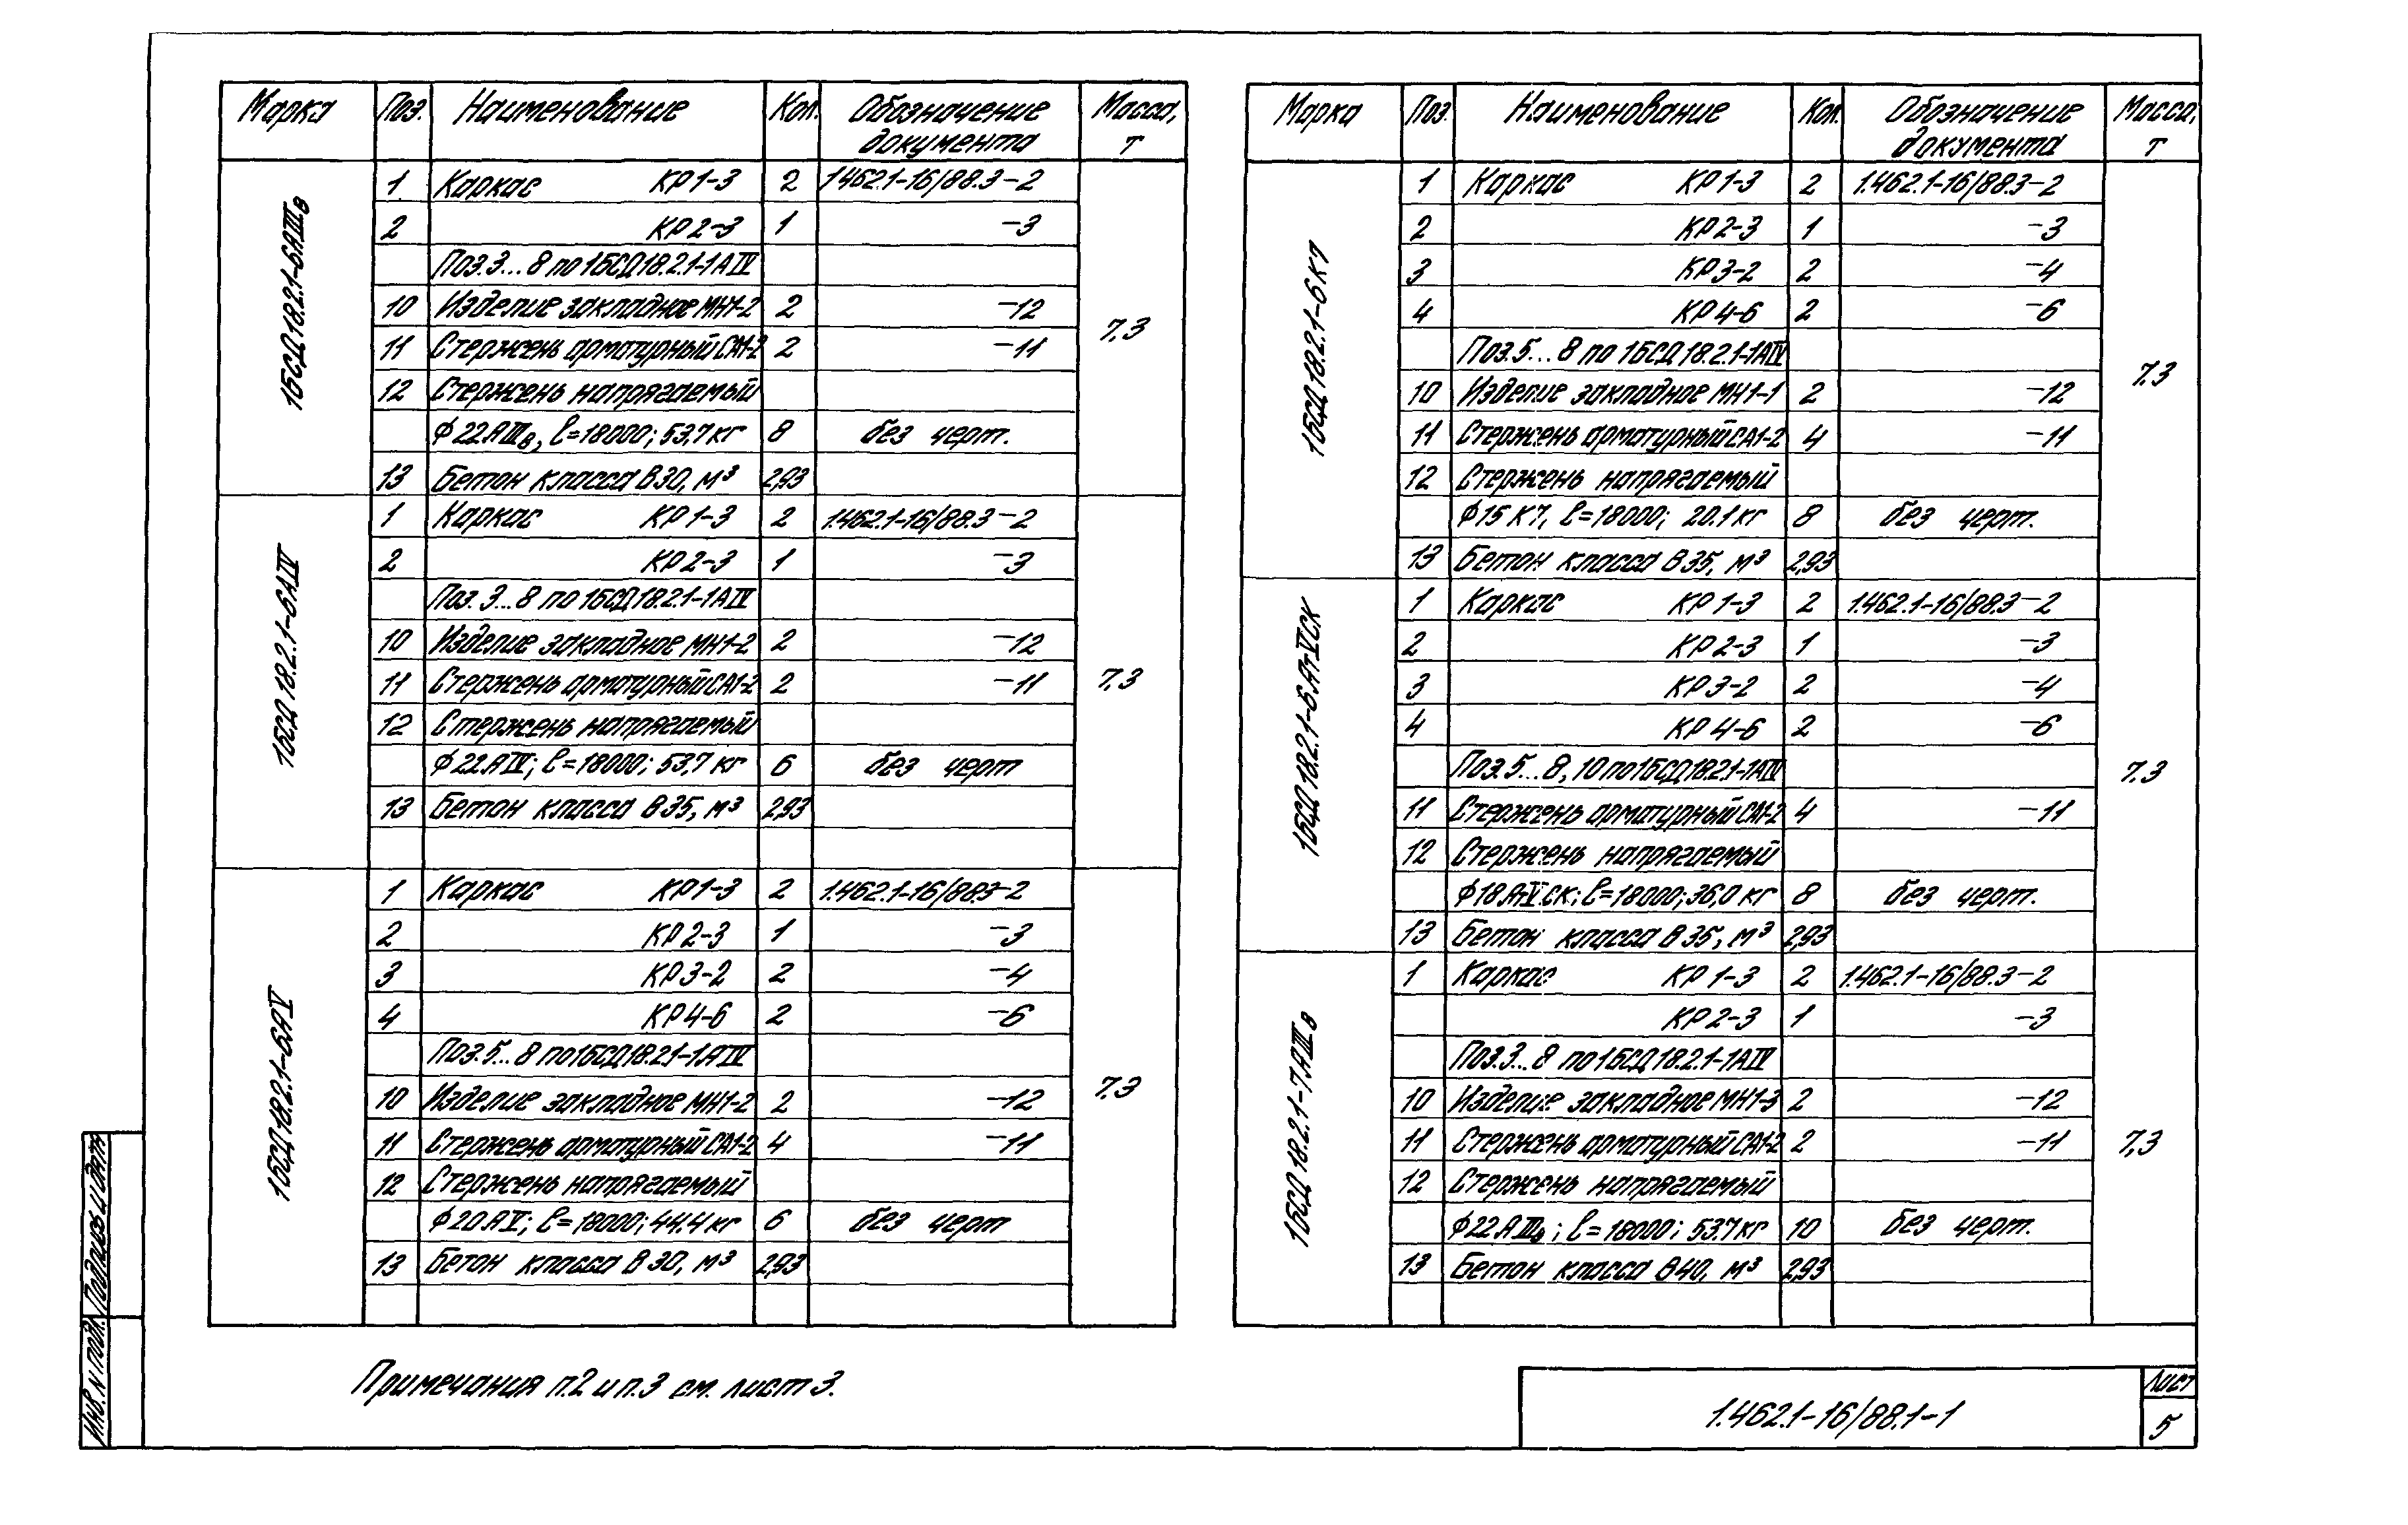 Марка Поз. Наименование Кол. Обозначение документа Масса, т
1БСД18.2.1-6АIIIв
1 Каркас КР1-3 2 1.462.1-16/88.3-2
2 КР2-3 1 -3
Поз.3...8 по 1БСД18.2.1-1АIV
10 Изделие закладное МН1-2 2 -12
11 Стержень арматурный СА1-2 2 -11
7,3
12 Стержень напрягаемый
ф22АIIIв, ℓ=18000; 53,7кг 8 без черт.
13 Бетон класса В30, м³ 2,93
1БСД18.2.1-6АIV
1 Каркас КР1-3 2 1.462.1-16/88.3-2
2 КР2-3 1 -3
Поз.3...8 по 1БСД18.2.1-1АIV
10 Изделие закладное МН1-2 2 -12
11 Стержень арматурный СА1-2 2 -11
7,3
12 Стержень напрягаемый
ф22АIV; ℓ=18000; 53,7кг 6 без черт
13 Бетон класса В35, м³ 2,93
1БСД18.2.1-6АV
1 Каркас КР1-3 2 1.462.1-16/88.3-2
2 КР2-3 1 -3
3 КР3-2 2 -4
4 КР4-6 2 -6
Поз.5...8 по 1БСД18.2.1-1АIV
10 Изделие закладное МН1-2 2 -12
7,3
11 Стержень арматурный СА1-2 4 -11
12 Стержень напрягаемый
ф20АV; ℓ=18000; 44,4кг 6 без черт
13 Бетон класса В30, м³ 2,93
Марка Поз. Наименование Кол. Обозначение документа Масса, т
1БСД18.2.1-6К7
1 Каркас КР1-3 2 1.462.1-16/88.3-2
2 КР2-3 1 -3
3 КР3-2 2 -4
4 КР4-6 2 -6
Поз.5...8 по 1БСД18.2.1-1АIV
7,3
10 Изделие закладное МН1-1 2 -12
11 Стержень арматурный СА1-2 4 -11
12 Стержень напрягаемый
ф15К7, ℓ=18000; 20.1кг 8 без черт.
13 Бетон класса В35, м³ 2,93
1БСД18.2.1-6Ат-VСК
1 Каркас КР1-3 2 1.462.1-16/88.3-2
2 КР2-3 1 -3
3 КР3-2 2 -4
4 КР4-6 2 -6
Поз.5...8, 10 по 1БСД18.2.1-1АIV
7,3
11 Стержень арматурный СА1-2 4 -11
12 Стержень напрягаемый
ф18Ат-V.СК; ℓ=18000; 36,0кг 8 без черт.
13 Бетон класса В35, м³ 2,93
1БСД18.2.1-7АIIIв
1 Каркас КР1-3 2 1.462.1-16/88.3-2
КР2-3 1 -3
Поз.3...8 по 1БСД18.2.1-1АIV
10 Изделие закладное МН1-3 2 -12
11 Стержень арматурный СА1-2 2 -11
7,3
12 Стержень напрягаемый
ф22АIIIв; ℓ=18000; 53.7кг 10 без черт.
13 Бетон класса В40, м³ 2,93
Примечания п.2 и п.3 см. лист 3.
1.462.1-16/88.1-1
Лист
5
Инв. N подл. Подпись и дата